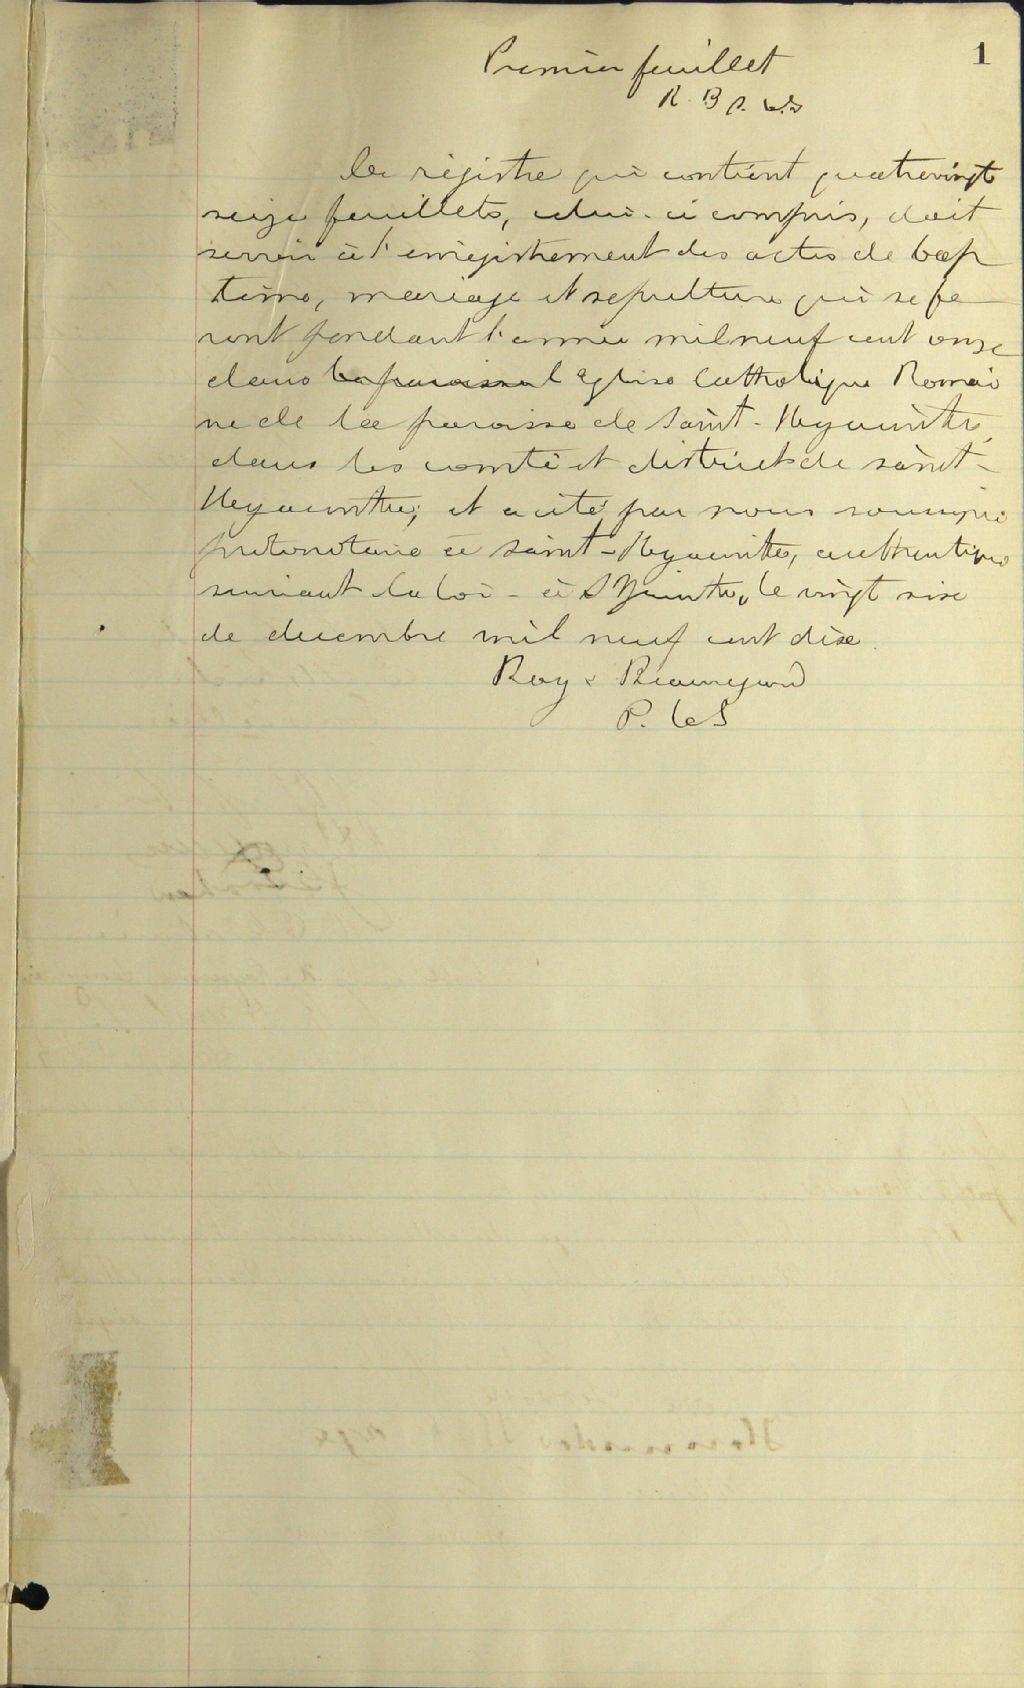 1
Premier feuillet
R. B P. C.S
Ce régistre qui contient quatrevingt
seize feuillets, celui-ci compris, doit
servir à l'enrégistrement des actes de bap
tême, mariage et sépulture qui se fe
ront pendant l'année mil neuf cent onze
dans la paroisse l'Eglise Catholique Romai
ne de la paroisse de Saint-Hyacinthe,
dans les comté et district de saint-
Hyacinthe; et a été par nous soussigné
protonotaire à Saint-Hyacinthe, authentiqué
suivant la loi - à St Hyacinthe, le vingt six
de decembre mil neuf cent dix.
Roy & Beauregard
P. C S